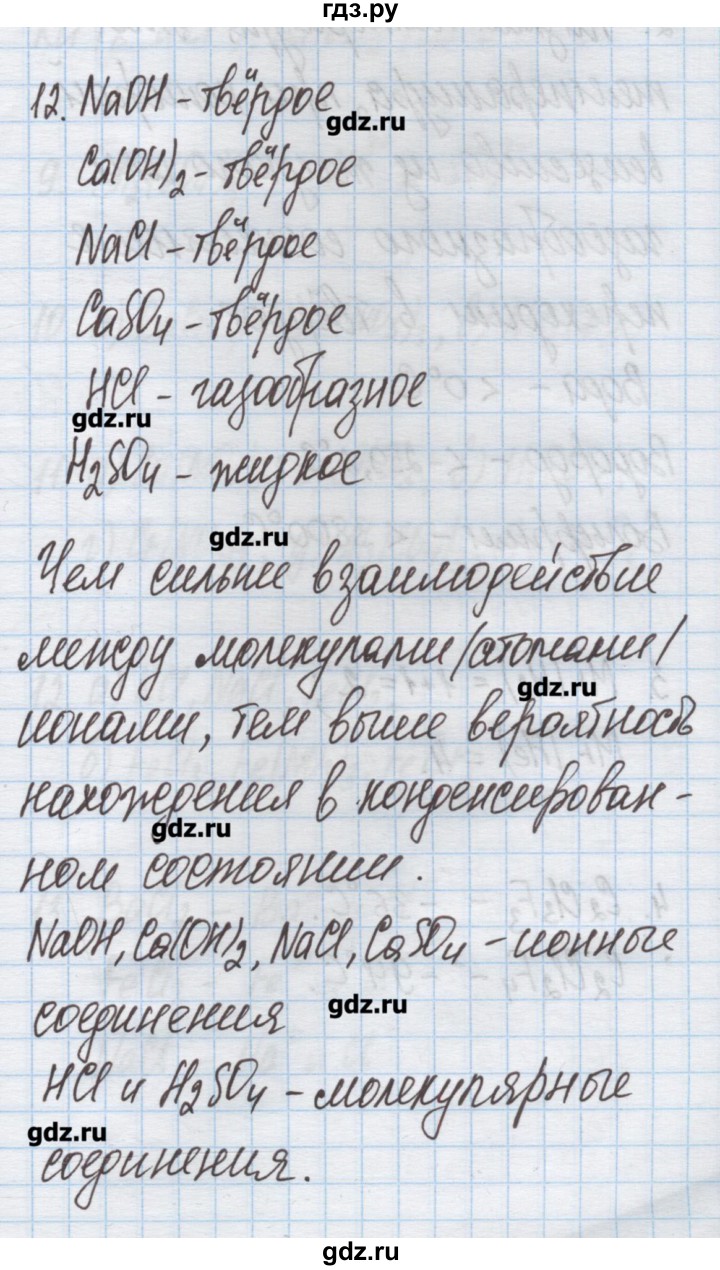 гдз.ру
12. NaOH - твёрдое
gdz.ru
Ca(OH)2 - твёрдое
NaCl - твёрдое
CaSO4 - твёрдое
HCl - газообразное
gdz.ru
H2SO4 - жидкое
gdz.ru
Чем сильнее взаимодействие
между молекулами/атомами/
gdz.ru
ионами, тем выше вероятность
нахождения в конденсирован-
gdz.ru
ном состоянии.
NaOH, Ca(OH)2, NaCl, CaSO4 - ионные
gdz.ru
соединения
HCl и H2SO4 - молекулярные
gdz.ru
соединения.
gdz.ru